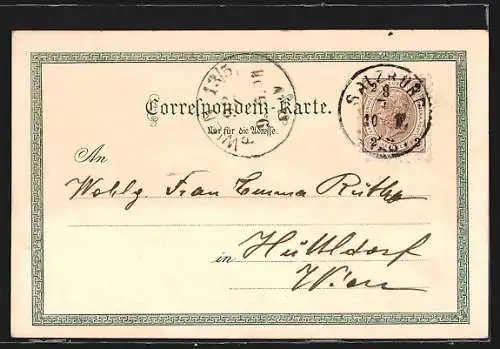 Correspondenz-Karte.
Nur für die Adresse.
SALZBURG
WIEN 13/5
An
Wohlg. Frau Emma
in Hütteldorf
Wien